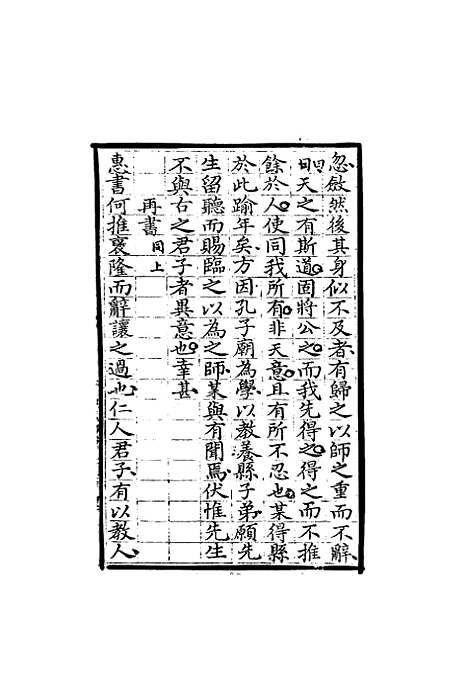 忽斂然後其身似不及者有歸之以師之重而不辭
曰天之有斯道固將公之而我先得之得之而不推
餘於人使同我所有非天意且有所不忍也某得縣
於此踰年矣方因孔子廟為學以教養縣子弟願先
生留聽而賜臨之以為之師某與有聞焉伏惟先生
不與古之君子者異意也幸甚
再書同上
惠書何推襃隆而辭讓之過也仁人君子有以教人